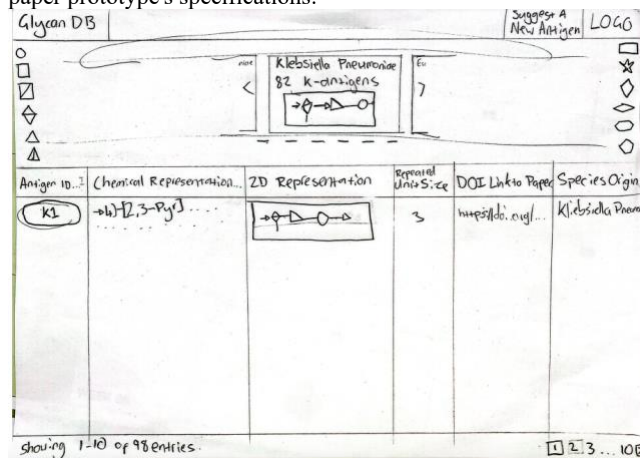 paper prototype's specifications.
Glycan DB
Suggest A
New Antigen
LOGO
Klebsiella Pneumoniae
82 K-antigens
<
>
Antigen ID...
Chemical Representation...
2D Representation
Repeated
Unit Size
DOI Link to Paper
Species Origin
K1
→4)-[2,3-Pyr]....
3
https://doi.org/...
Klebsiella Pneum
showing 1-10 of 98 entries.
1 2 3 ... 10